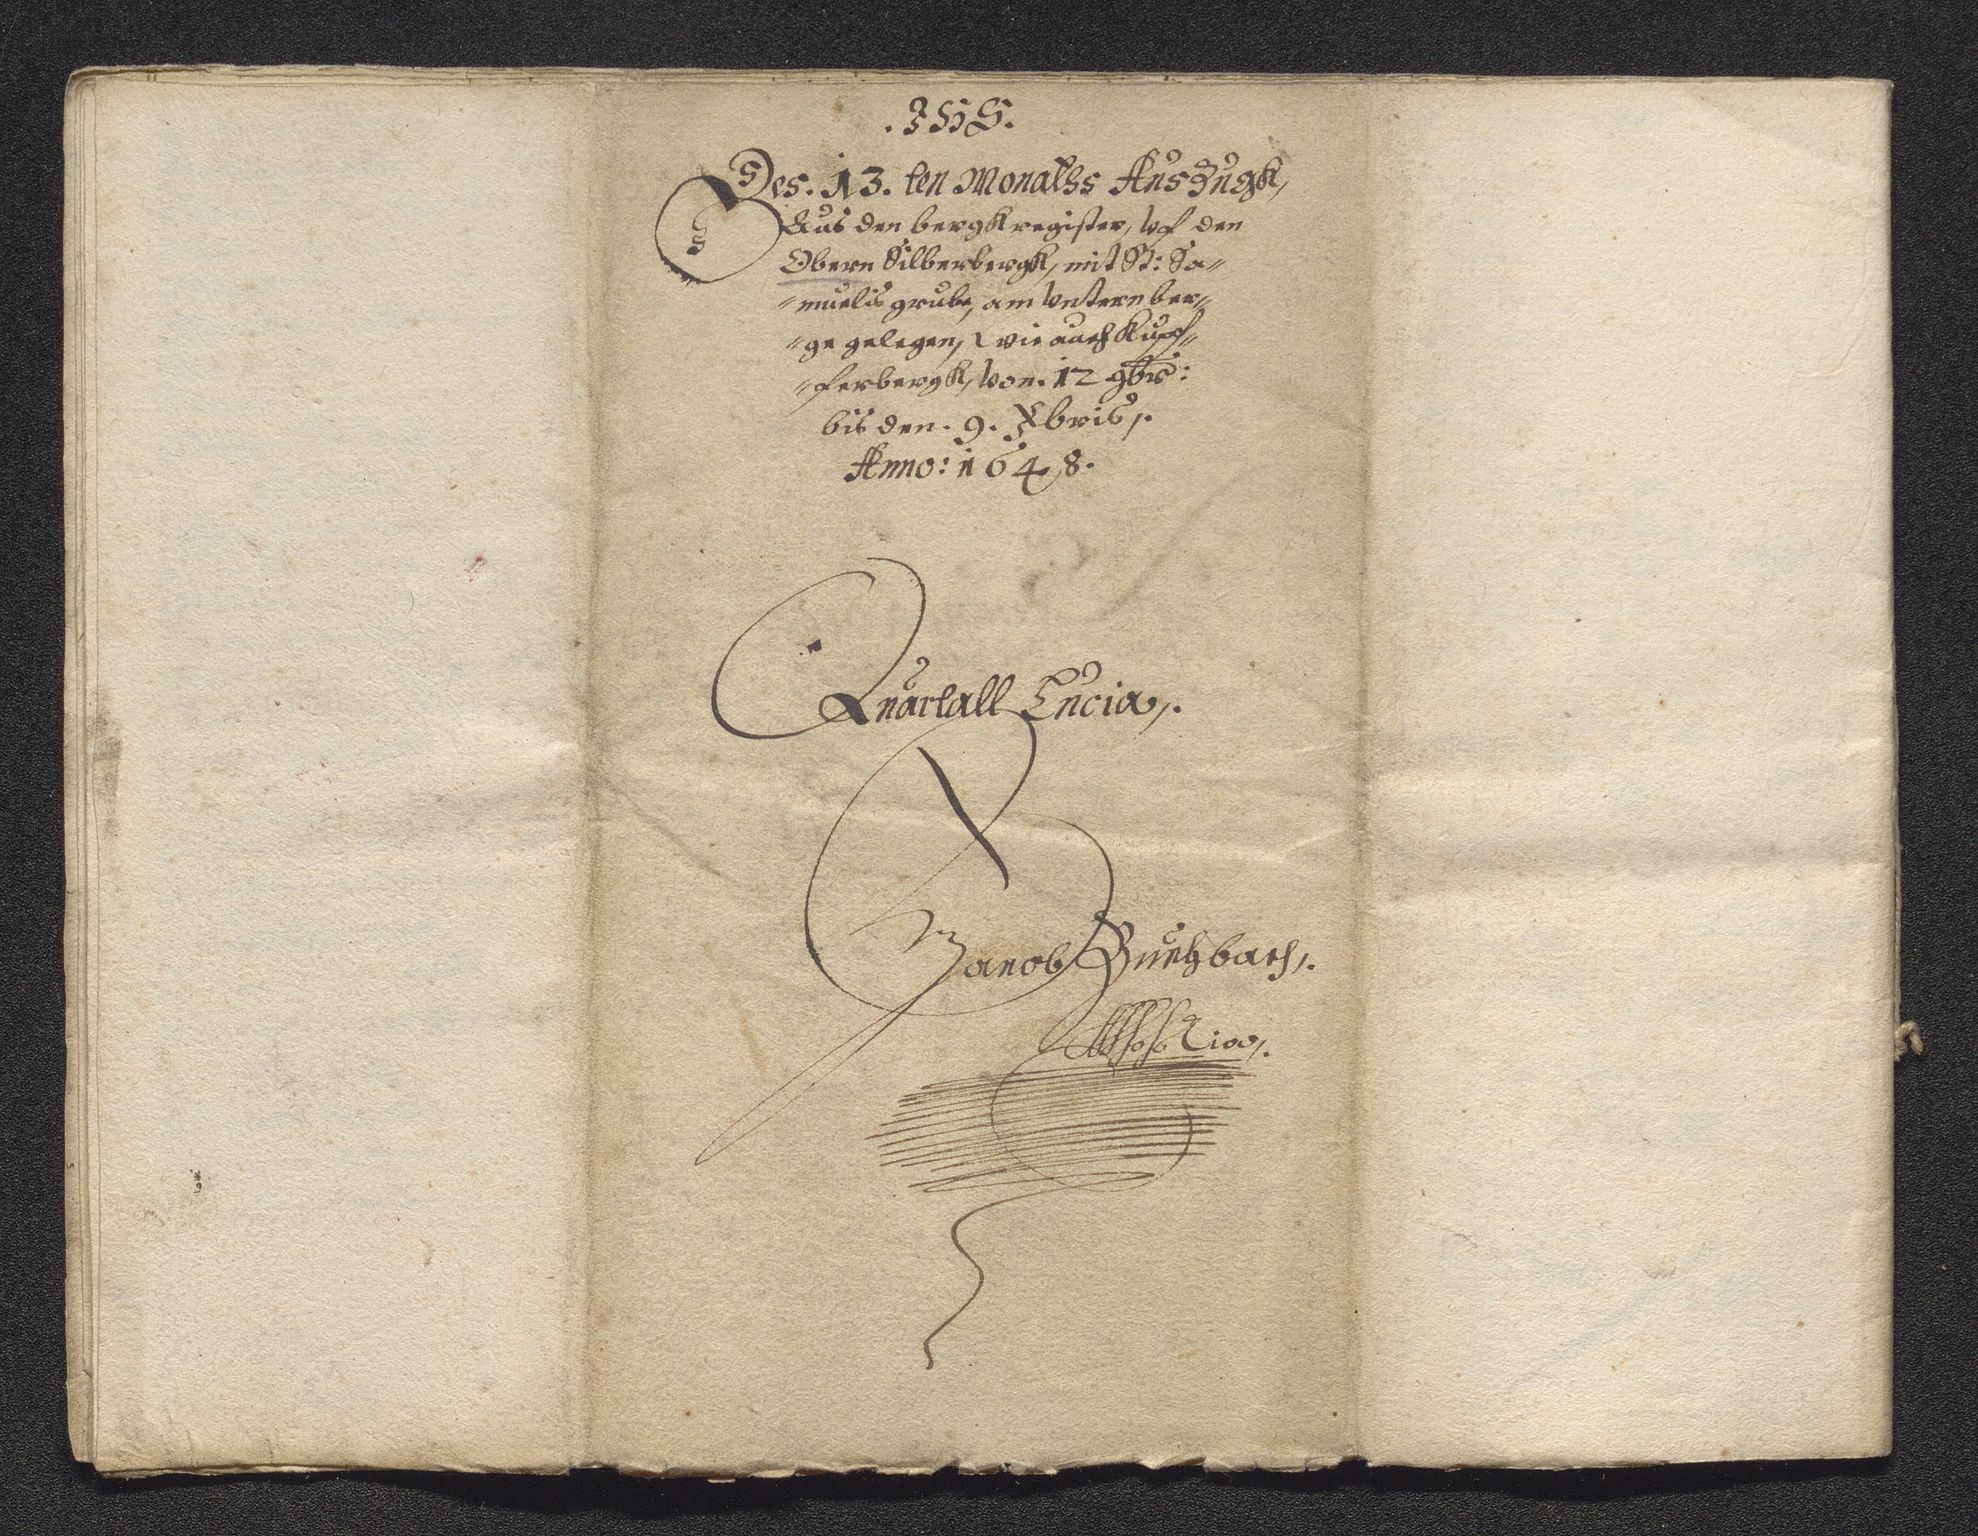 .JHS.
Des. 13. ten Monaths Auszugk,
Aus den bergkregister, Vf den
Obern Silberbergk, mit St: Sa=
=muelis grube, am Vntern ber=
=ge gelegen, wie auch Kupf=
=ferbergk, Von. 12 9bris:
bis den. 9. Xbris,.
Anno: 1648.
Quartall Lucia,.
Jacob Buchbach,.